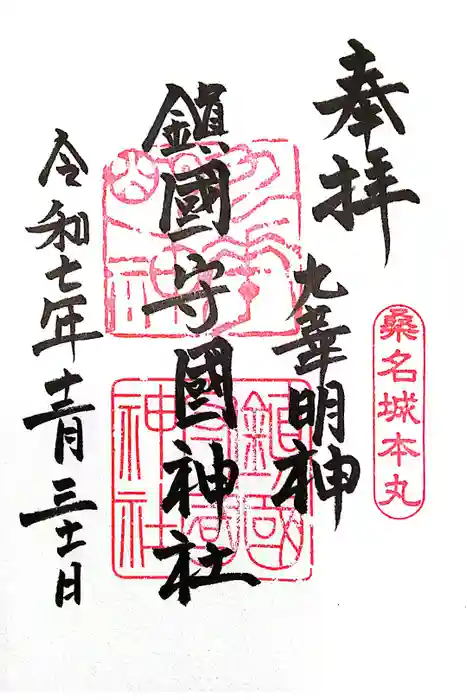 奉拝
桑名城本丸
九華明神
鎮國守國神社
令和七年十二月三十一日
鎮國
守國
神社